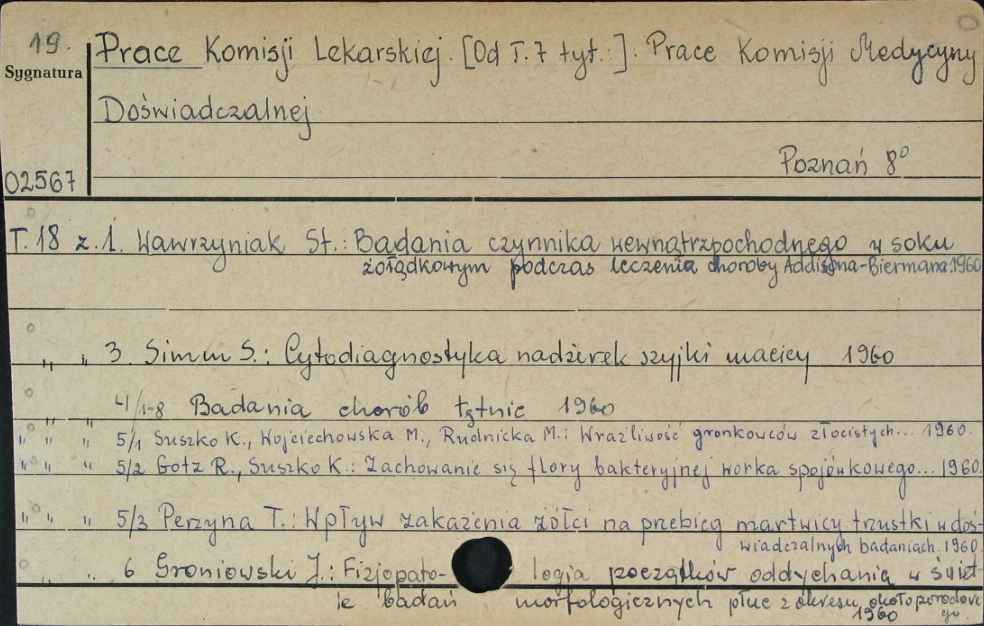 19.
Sygnatura
02567
Prace Komisji Lekarskiej. [Od T. 7 tyt.:]. Prace Komisji Medycyny
Doświadczalnej
Poznań 8°
T. 18 z. 1. Wawrzyniak St.: Badania czynnika wewnątrzpochodnego w soku
żołądkowym podczas leczenia choroby Addisona-Biermana. 1960
" " 3. Simm S.: Cytodiagnostyka nadżerek szyjki macicy 1960
" " 4/1-8 Badania chorób tętnic 1960
" " " 5/1 Suszko K., Wojciechowska M., Rudnicka M.: Wrażliwość gronkowców złocistych... 1960.
" " " 5/2 Gotz R., Suszko K.: Zachowanie się flory bakteryjnej worka spojówkowego... 1960.
" " " 5/3 Perzyna T.: Wpływ zakażenia żółci na przebieg martwicy trzustki w doś-
wiadczalnych badaniach. 1960.
" " 6 Groniowski J.: Fizjopato-logia początków oddychania w świet-
le badań morfologicznych płuc z okresu okołoporodowe
go. 1960